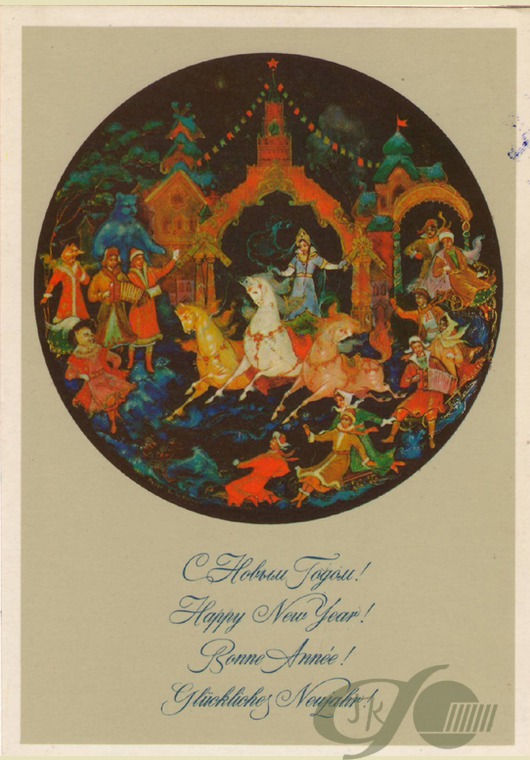 С Новым Годом!
Happy New Year!
Bonne Année!
Glückliches Neujahr!